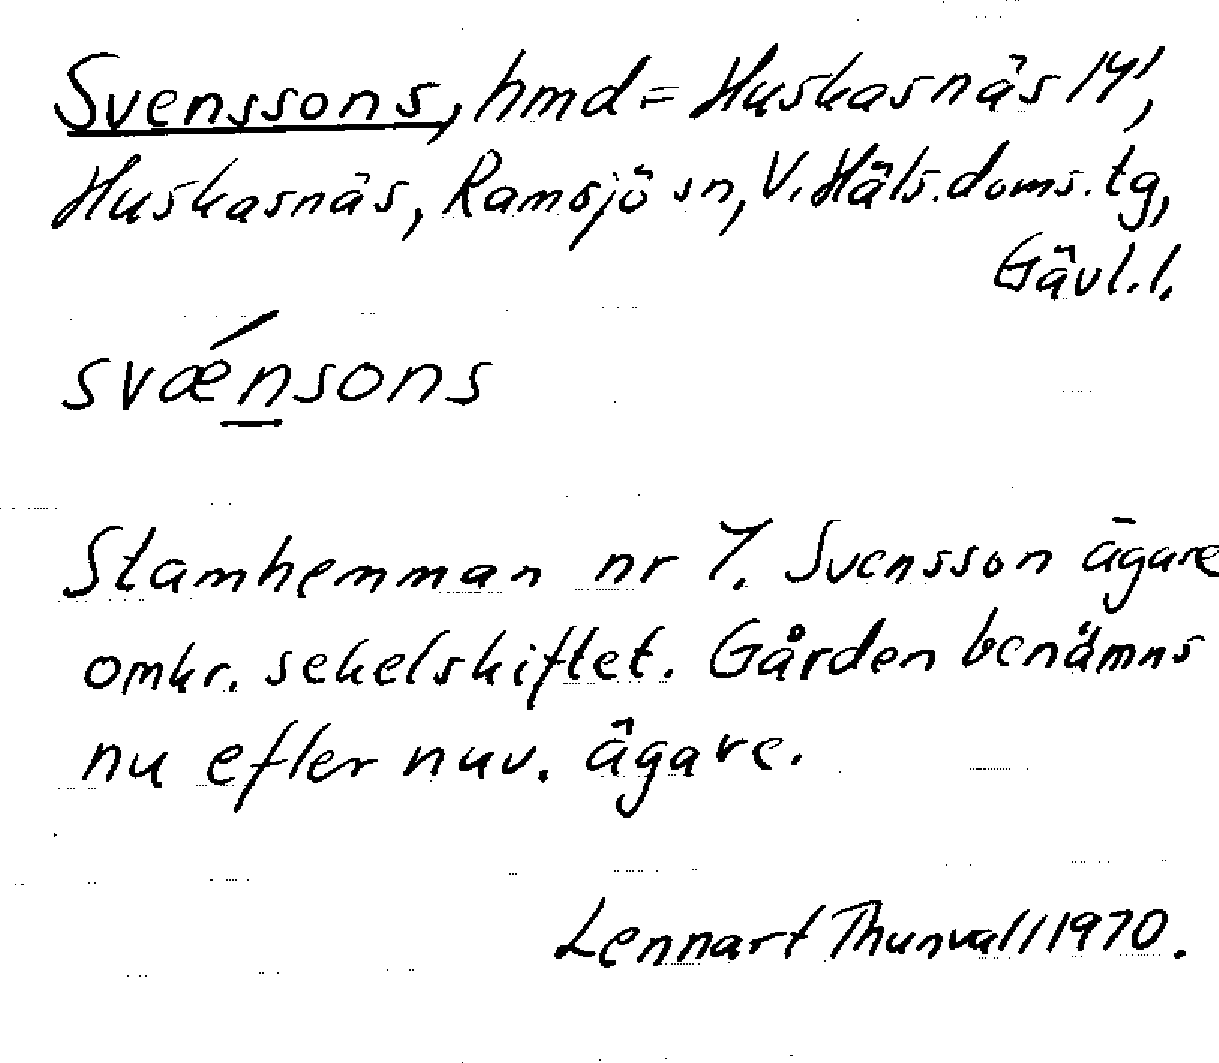 Svenssons, hmd = Huskasnäs 1⁴,
Huskasnäs, Ramsjö sn, V. Häls. doms. tg,
Gävl. l.
svǽnsons
Stamhemman nr 7. Svensson ägare
omkr. sekelskiftet. Gården benämns
nu efter nuv. ägare.
Lennart Thunvall 1970.